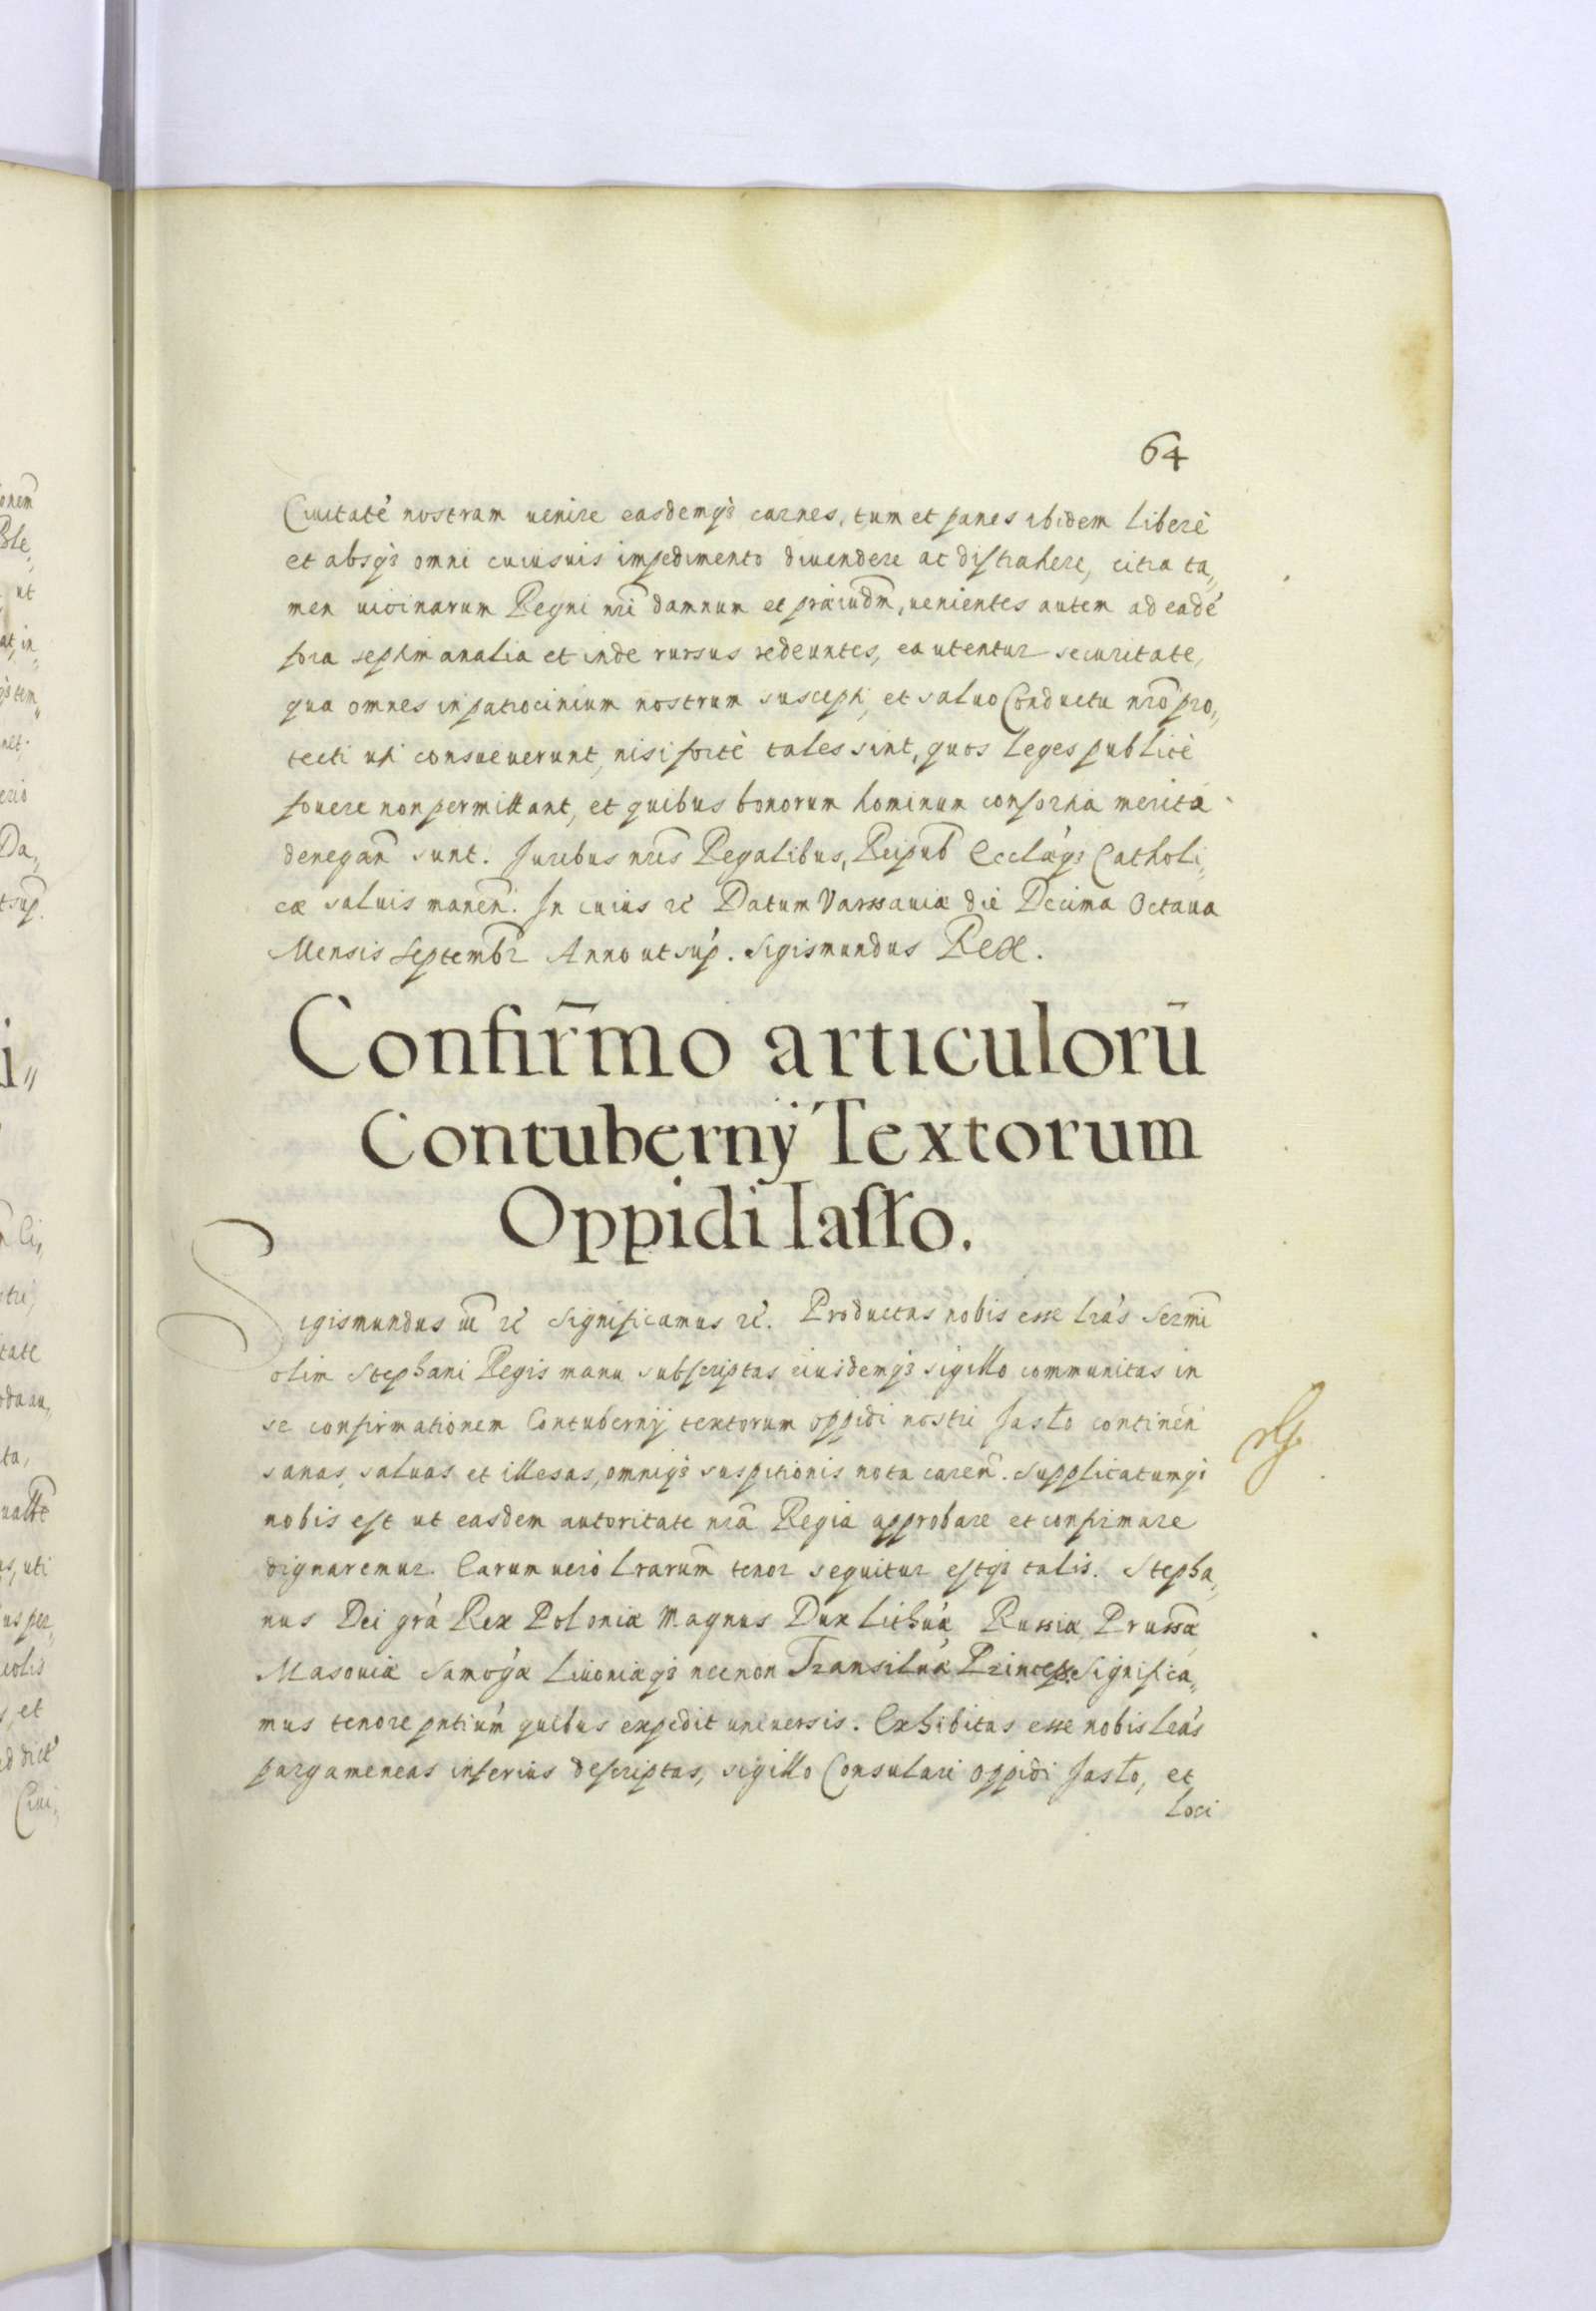 64
Ciuitatē nostram uenire easdemq3 carnes, tum et panes ibidem liberè
et absq3 omni cuiusuis impedimento diuendere ac distrahere, citra ta„
men uicinarum Regni nr̃i damnum et præiudm̃, uenientes autem ad eadē
fora septimanalia et inde rursus redeuntes, ea utentur securitate,
qua omnes in patrocinium nostrum suscepti, et saluo Conductu nr̃o pro„
tecti uti consueuerunt, nisi fortè tales sint, quos leges publicè
fouere non permittant, et quibus bonorum hominum consortia merita
denegan̄ sunt. Juribus nr̃is Regalibus, Reipub̃ Ecclæq3 Catholi„
cæ saluis manen̄. In cuius rē Datum Varssauiæ die Decima Octaua
Mensis Septembr̃ Anno ut sup̃. Sigismundus Rex.
Confir̄mo articulorū
Contubernÿ Textorum
Oppidi Iasło.
Sigismundus iiĩ rē Significamus rē. Productas nobis esse lr̃as Sermi
olim Stephani Regis manu subscriptas eiusdemq3 sigillo communitas in
se confirmationem Contubernij textorum oppidi nostri Jasło continēn
sanas, saluas et illesas, omniq3 suspitionis nota caren̄. Supplicatumq3
nobis est ut easdem autoritate nr̃a Regia approbare et confirmare
dignaremur. Earum uerò lrarum̃ tenor sequitur estq3 talis. Stepha„
nus Dei gr̃a Rex Poloniæ Magnus Dux Lithuæ Russiæ Prussæ
Masouiæ Samogæ Liuoniæq3 necnon Transiluæ Princeps. Significa„
mus tenore pñtium quibus expedit uniuersis. Exhibitas esse nobis lr̃as
pargameneas inferius descriptas, sigillo Consulari oppidi Jasło, et
loci